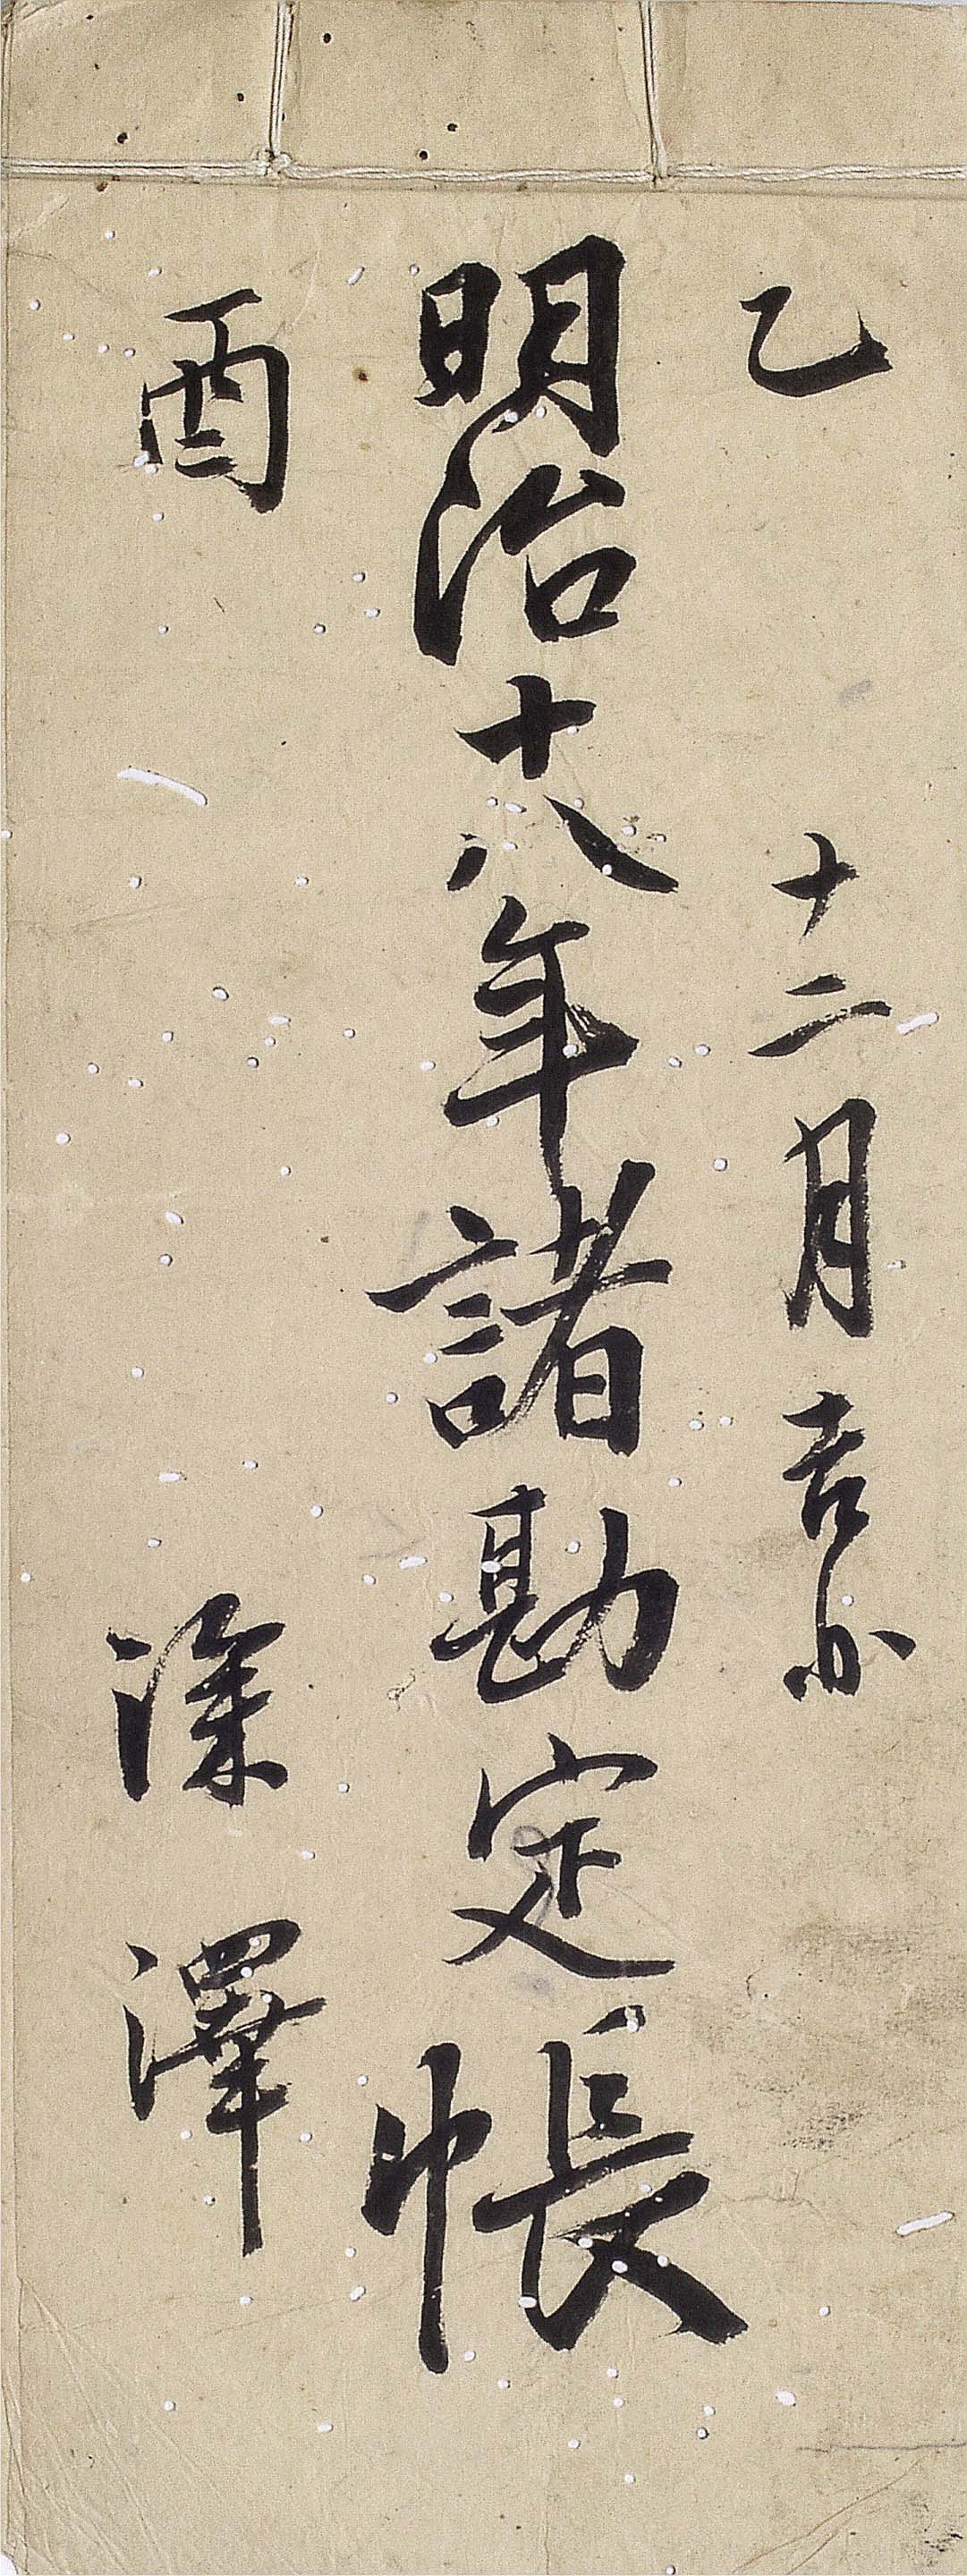 乙 十二月吉日
明治十八年諸勘定帳
酉 深澤